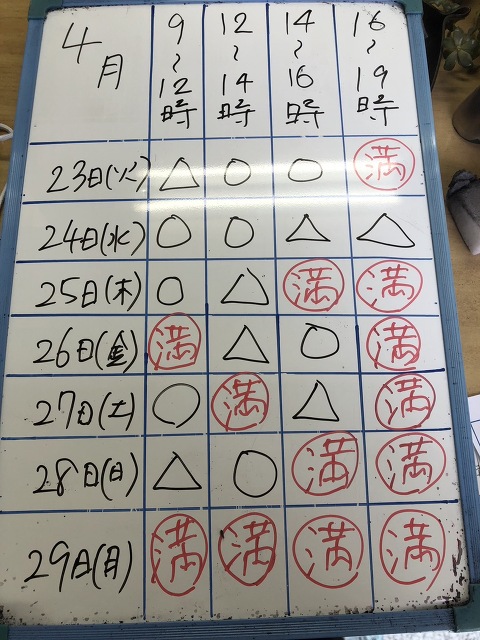 4月 9~12時 12~14時 14~16時 16~19時
23日(火) △ ○ ○ 満
24日(水) ○ ○ △ △
25日(木) ○ △ 満 満
26日(金) 満 △ ○ 満
27日(土) ○ 満 △ 満
28日(日) △ ○ 満 満
29日(月) 満 満 満 満